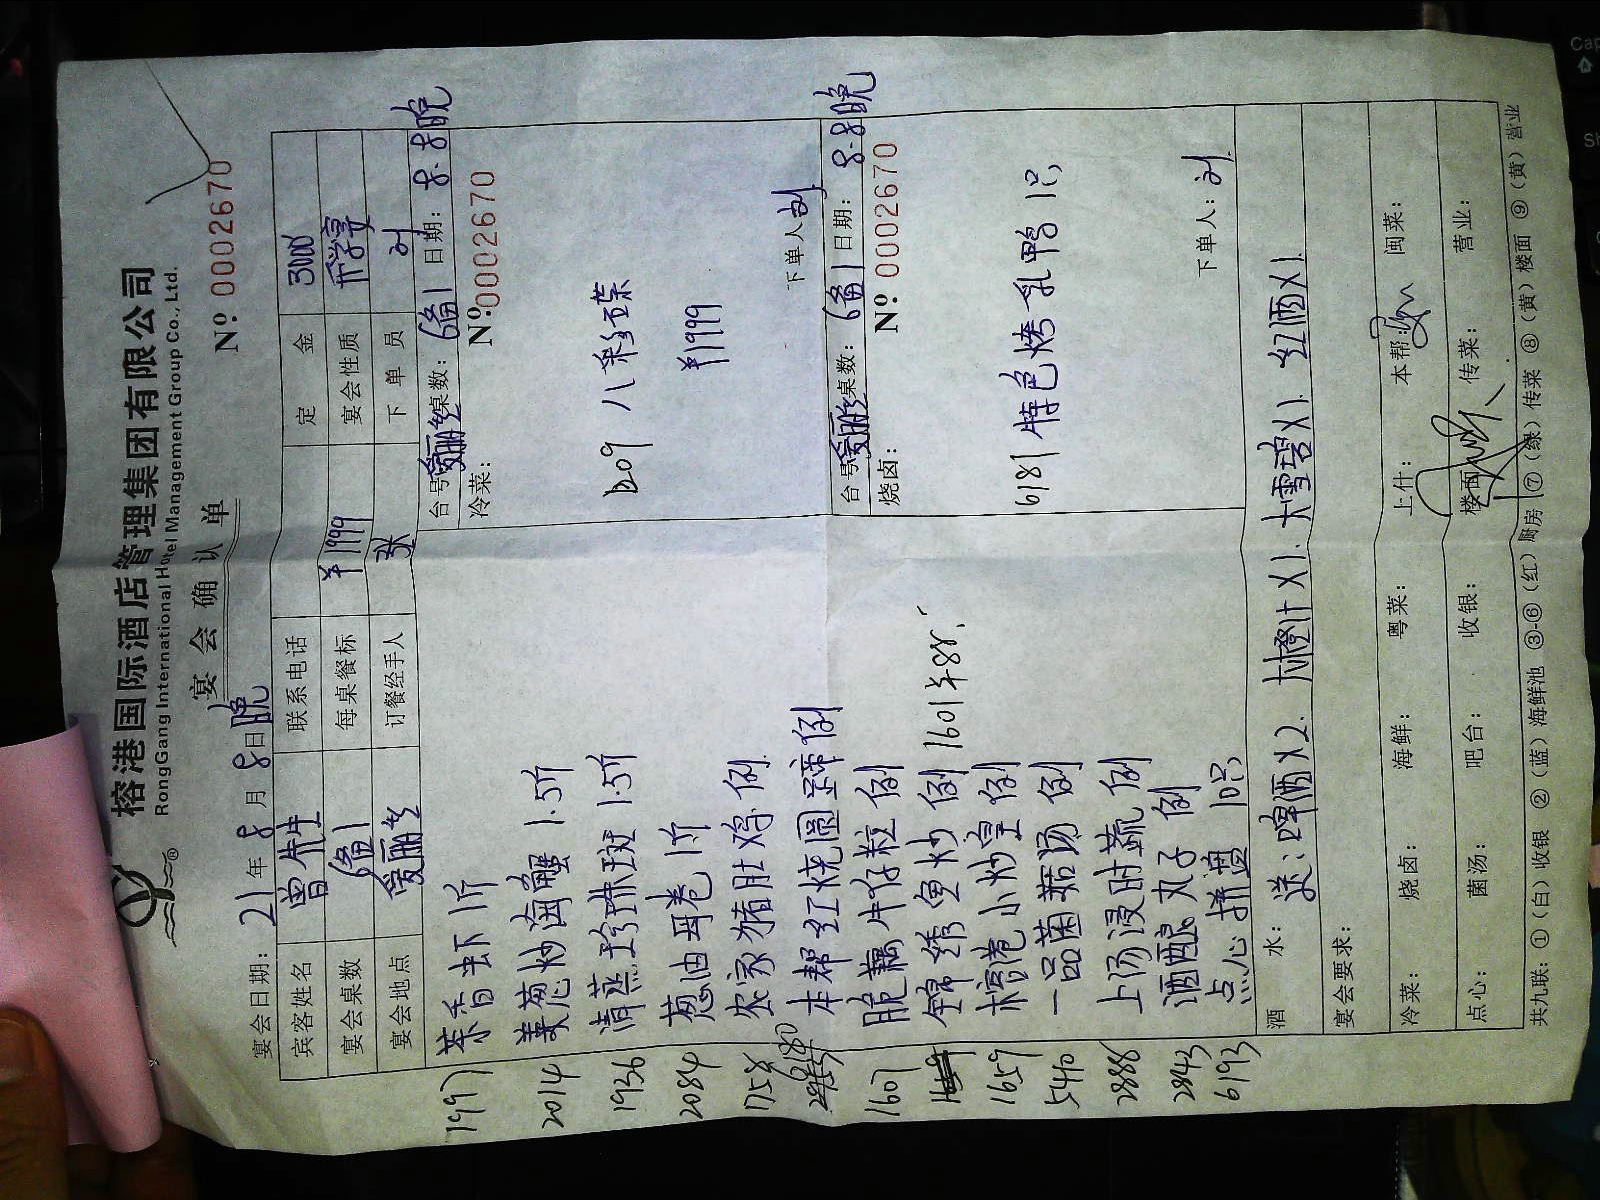 榕港国际酒店管理集团有限公司
RongGang International Hotel Management Group Co., Ltd.
宴会确认单
№ 0002670
宴会日期: 21年8月8日晚
宾客姓名 曾先生 联系电话 定金 3000
宴会桌数 6备1 每桌餐标 ¥1999 宴会性质 升学宴
宴会地点 爱丽丝 订餐经手人 张 下单员 刘
1997 茶香虾 1斤
2014 姜葱炒海蟹 1.5斤
1936 清蒸珍珠斑 1.5斤
2084 葱油毋卷 1斤
1758 农家猪肚鸡 例
本帮红烧圆蹄 例
1607 脆藕牛仔粒 例
锦绣鱼炒 例 1601 半88
1659 榕港小炒皇 例
5440 一品菌菇汤 例
2888 上汤浸时蔬 例
2843 酒酿丸子 例
6193 点心拼盘 10只
台号: 爱丽丝 桌数: 6备1 日期: 8.8晚
冷菜:
№: 0002670
b209 八彩碟
¥1999
下单人: 刘
台号: 爱丽丝 桌数: 6备1 日期: 8.8晚
烧卤:
№: 0002670
6181 特色烤乳鸭 1只
下单人: 刘
酒水: 送: 啤酒X2. 大橙汁X1. 大雪碧X1. 红酒X1.
宴会要求:
冷菜: 烧卤: 海鲜: 粤菜: 上什: 本帮: 闽菜:
点心: 菌汤: 吧台: 收银: 楼面: 传菜: 营业:
共九联: ①(白)收银 ②(蓝)海鲜池 ③-⑥(红)厨房 ⑦(绿)传菜 ⑧(黄)楼面 ⑨(黄)营业